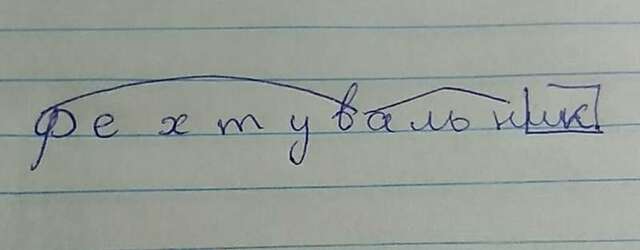 фехтувальник